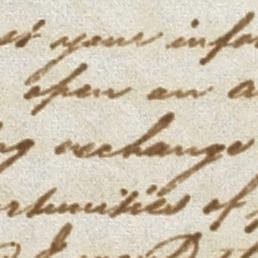 your infor
open an a
ng exchange
rtunities of